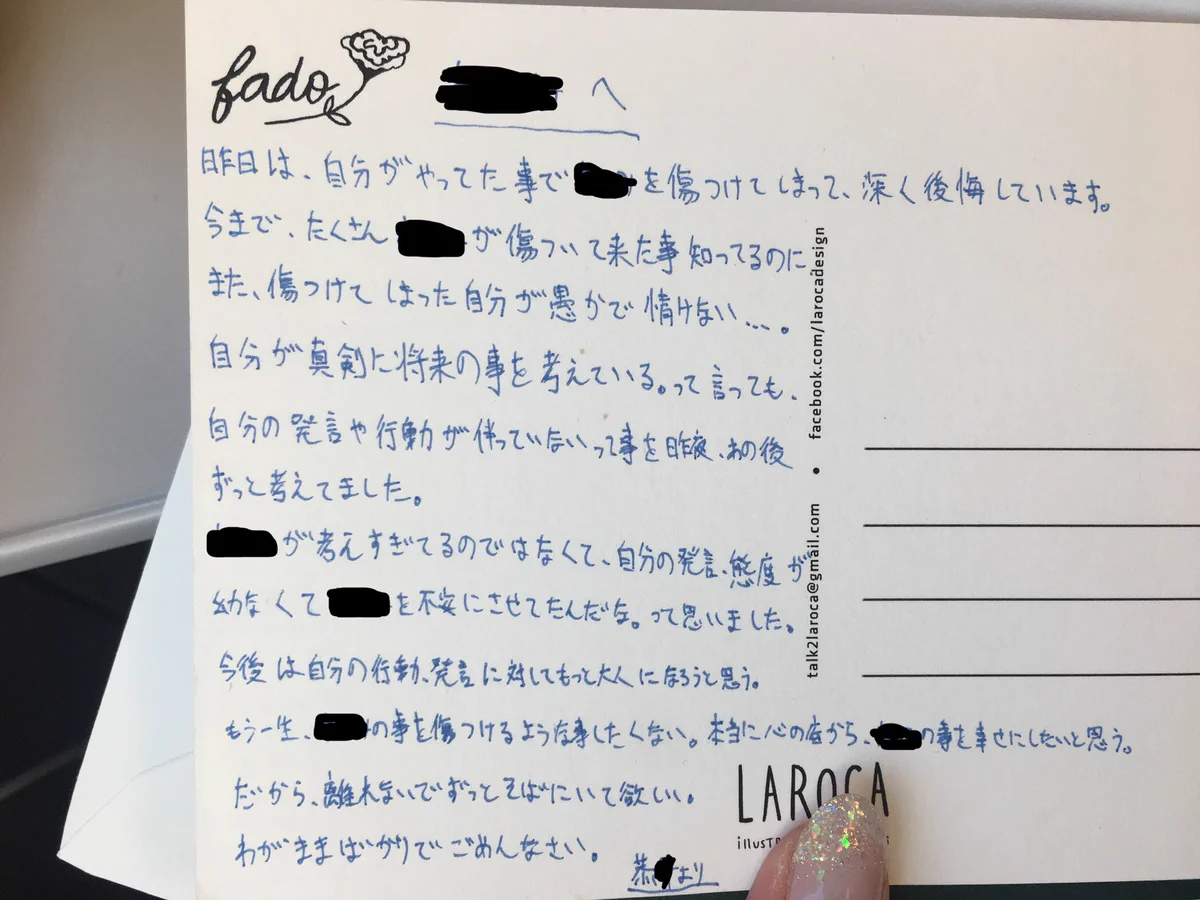 fado
へ
昨日は、自分がやってた事で を傷つけてしまって、深く後悔しています。
今まで、たくさん が傷ついて来た事知ってるのに
また、傷つけてしまった自分が愚かで情けない…。
自分が真剣に将来の事を考えている。って言っても、
自分の発言や行動が伴っていないって事を昨夜、あの後
ずっと考えてました。
が考えすぎてるのではなくて、自分の発言、態度が
幼なくて を不安にさせてたんだな。って思いました。
今後は自分の行動、発言に対してもっと大人になろうと思う。
もう一生、 の事を傷つけるような事したくない。本当に心の底から、 の事を幸せにしたいと思う。
だから、離れないでずっとそばにいて欲しい。
わがままばかりでごめんなさい。
より
talk2laroca@gmail.com • facebook.com/larocadesign
LAROCA